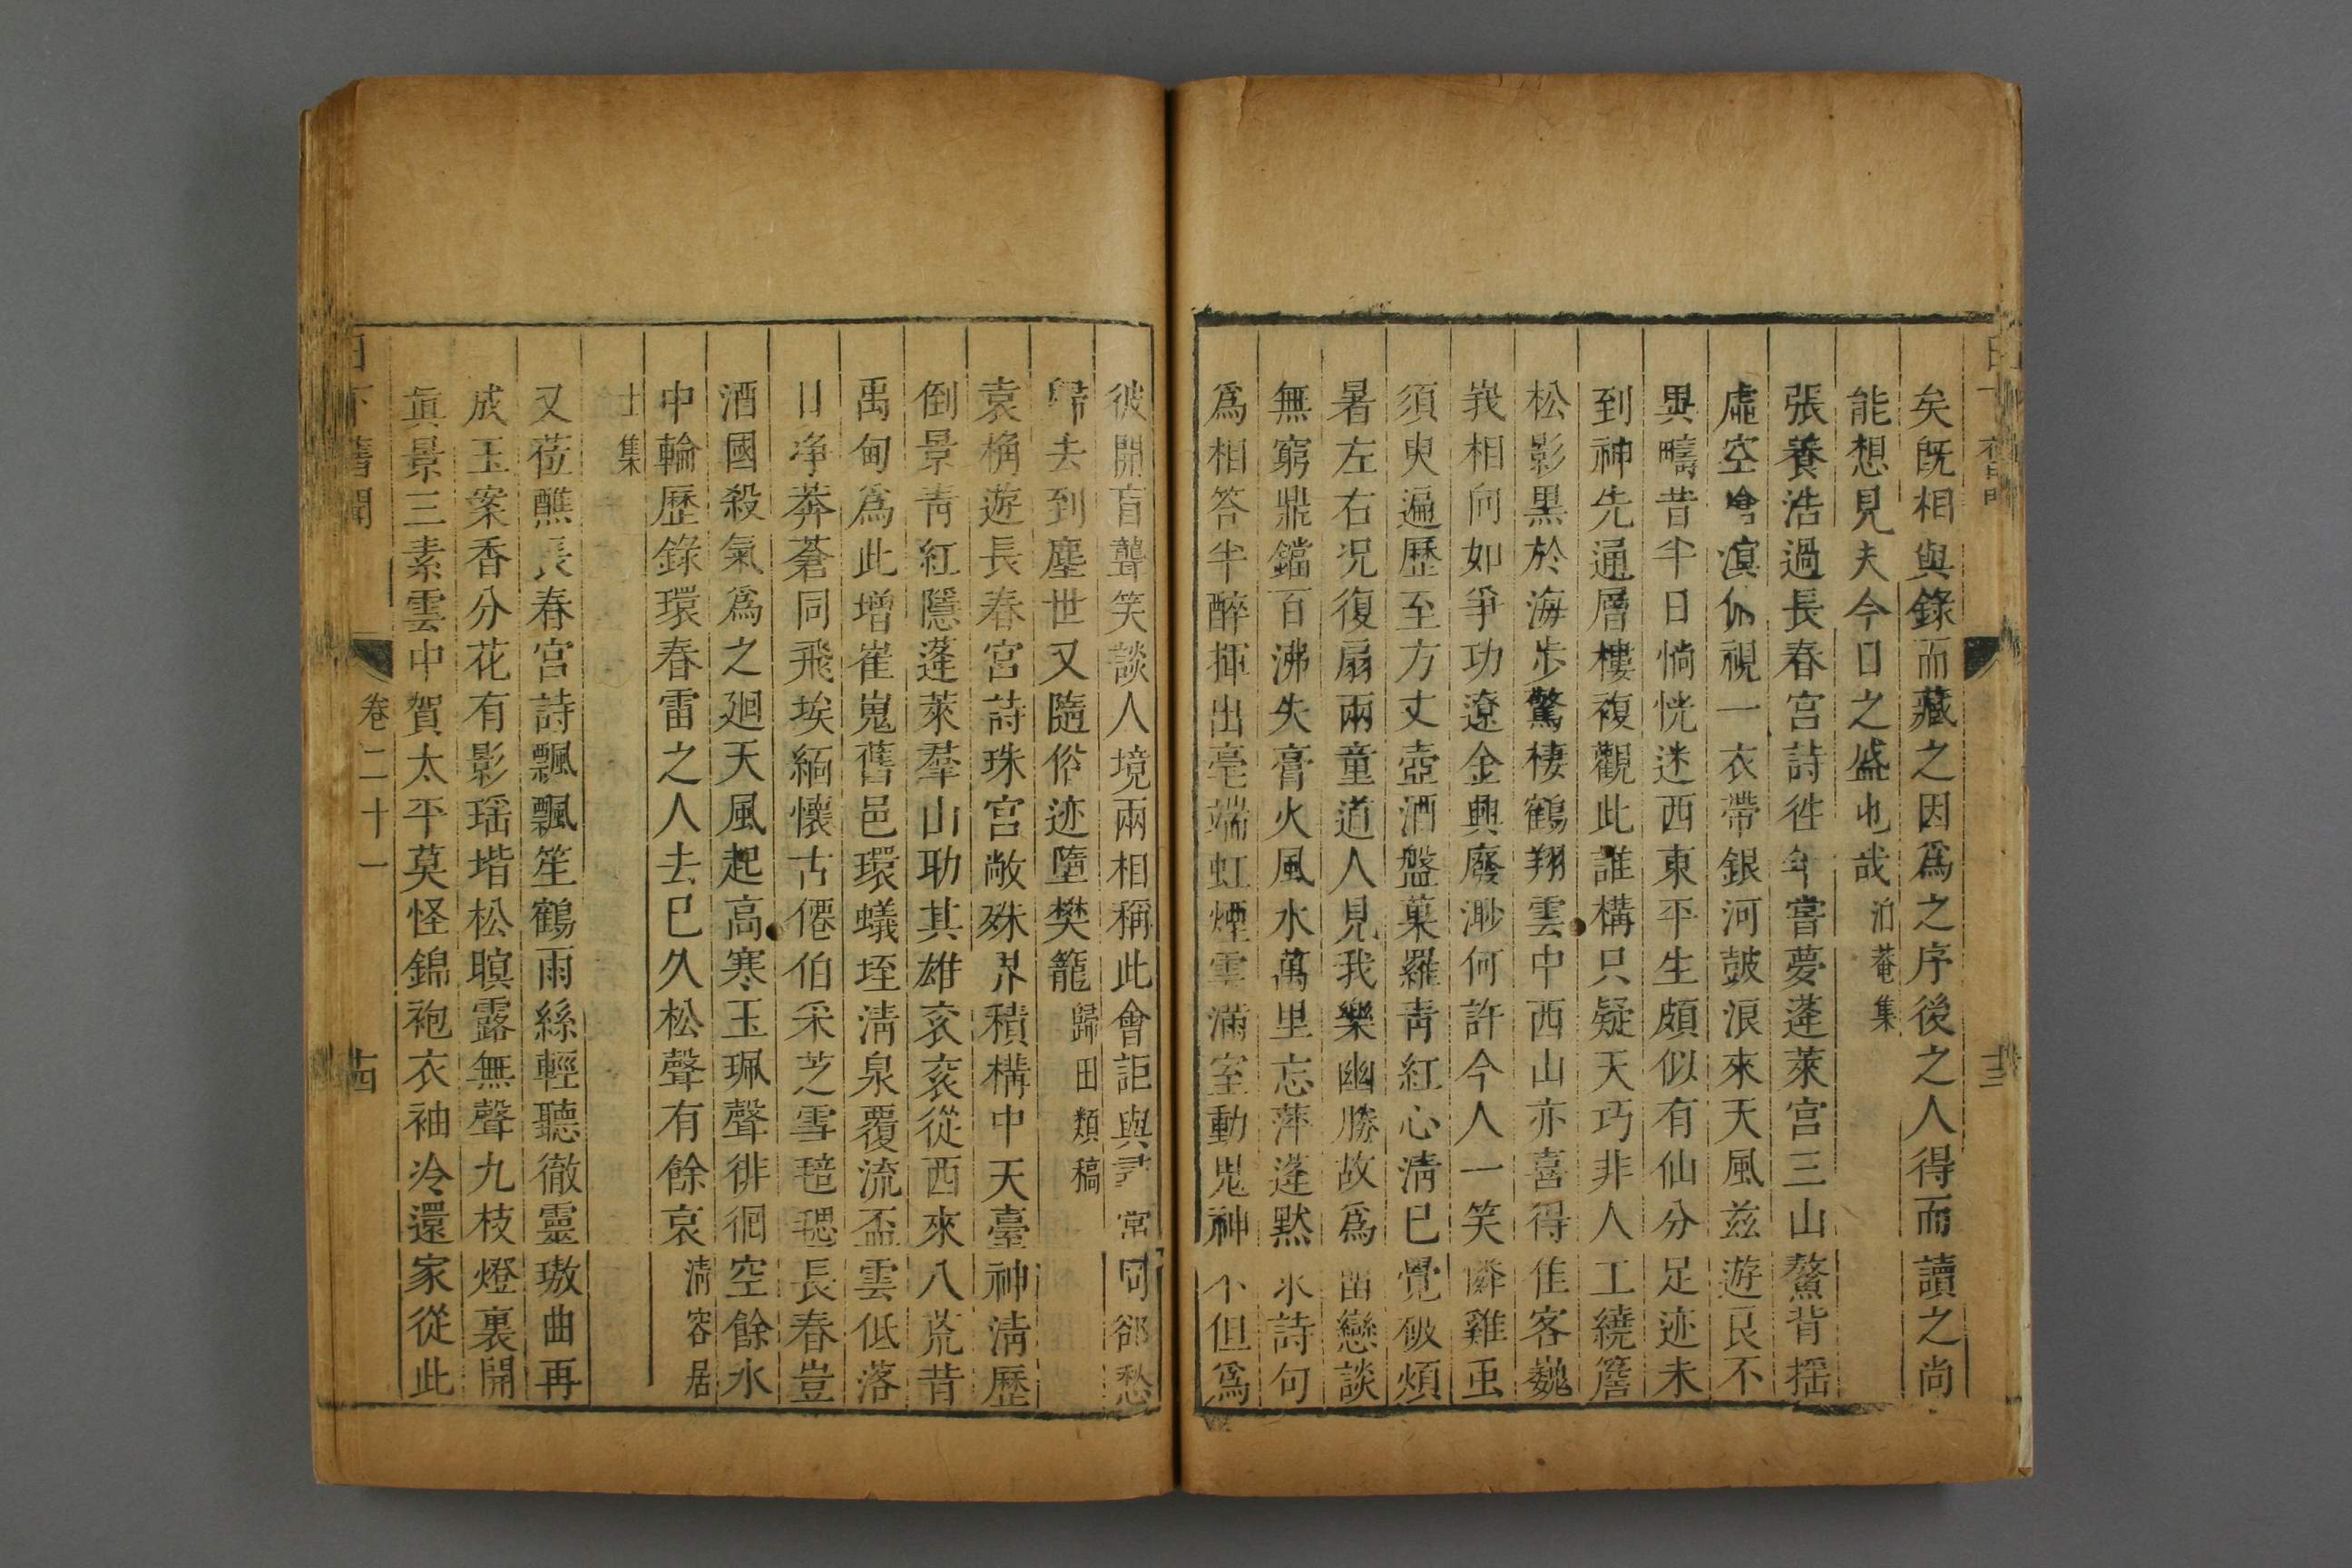 矣既相與錄而藏之因爲之序後之人得而讀之尚
能想見夫今日之盛也哉 泊菴集
張養浩過長春宮詩徃年嘗夢蓬萊宮三山鰲背揺
虛空滄溟俯視一衣帶銀河皷浪來天風兹遊良不
異疇昔半日惝恍迷西東平生頗似有仙分足迹未
到神先通層樓複觀此誰構只疑天巧非人工繞簷
松影黑於海步驚棲鶴翔雲中西山亦喜得佳客巍
峩相向如爭功遼金興廢渺何許今人一笑憐雞䖝
須臾遍歷至方丈壺酒盤菓羅靑紅心淸已覺破煩
暑左右况復扇兩童道人見我樂幽勝故爲留戀談
無窮鼎鐺百沸失膏火風水萬里忘萍蓬黙 求詩何
爲相答半醉揮出毫端虹煙雲滿室動鬼神不但爲
彼開盲聾笑談人境兩相稱此會詎與尋常同郤愁
歸去到塵世又隨俗迹墮樊籠 歸田類稿
袁桷遊長春宮詩珠宮敞殊界積構中天臺神淸歷
倒景靑紅隱蓬萊羣山助其雄衮衮從西來八荒昔
禹甸爲此增崔嵬舊邑環蟻垤淸泉覆流盃雲低落
日净莽蒼同飛埃緬懷古僊伯采芝雪毰毸長春豈
酒國殺氣爲之廻天風起高寒玉珮聲徘徊空餘水
中輪歷錄環春雷之人去已久松聲有餘哀 淸容居
士集
又莅醮長春宮詩飄飄笙鶴雨絲輕聽徹靈璈曲再
成玉案香分花有影瑶堦松暝露無聲九枝燈裏開
眞景三素雲中賀太平莫怪錦袍衣袖冷還家從此
日下舊聞 卷二十一 十四